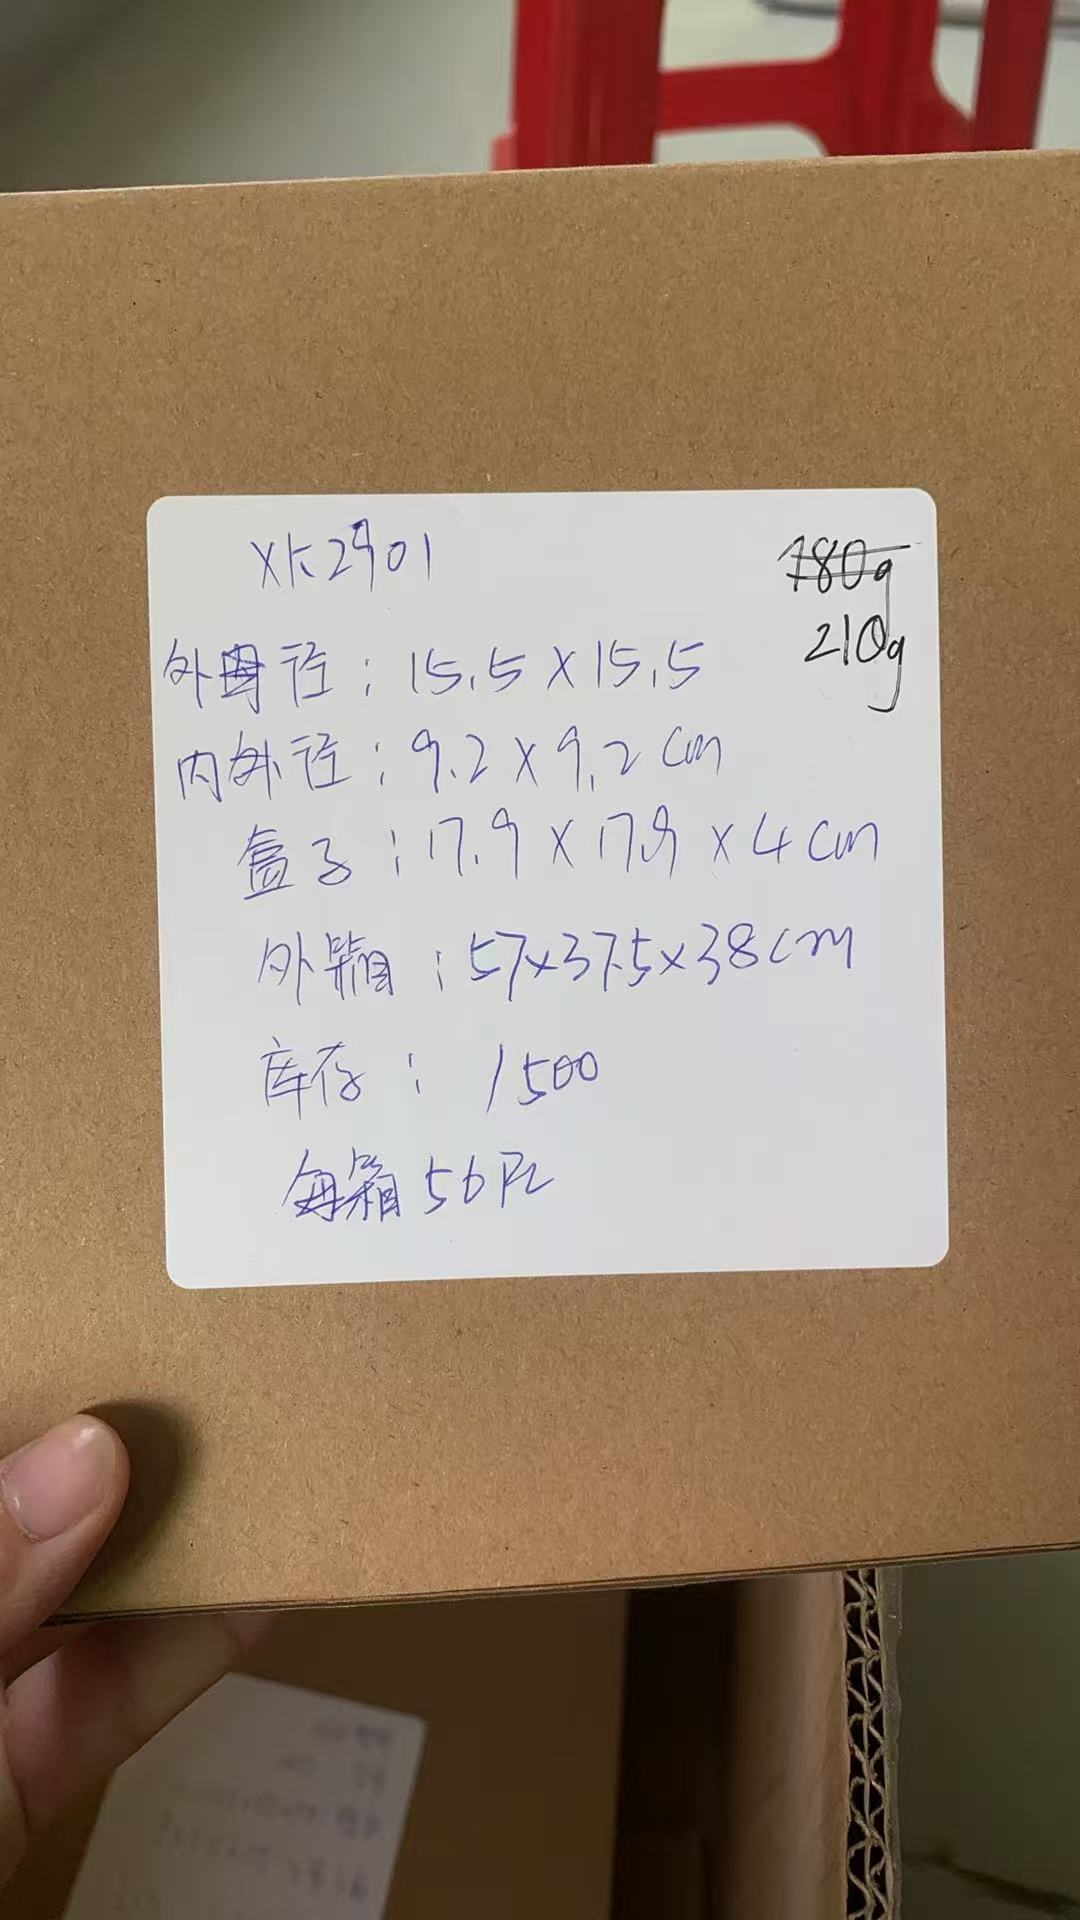 XK2901
780g
210g
外径：15.5×15.5
内径：9.2×9.2cm
盒子：17.9×17.9×4cm
外箱：57×37.5×38cm
库存：1500
每箱56PC